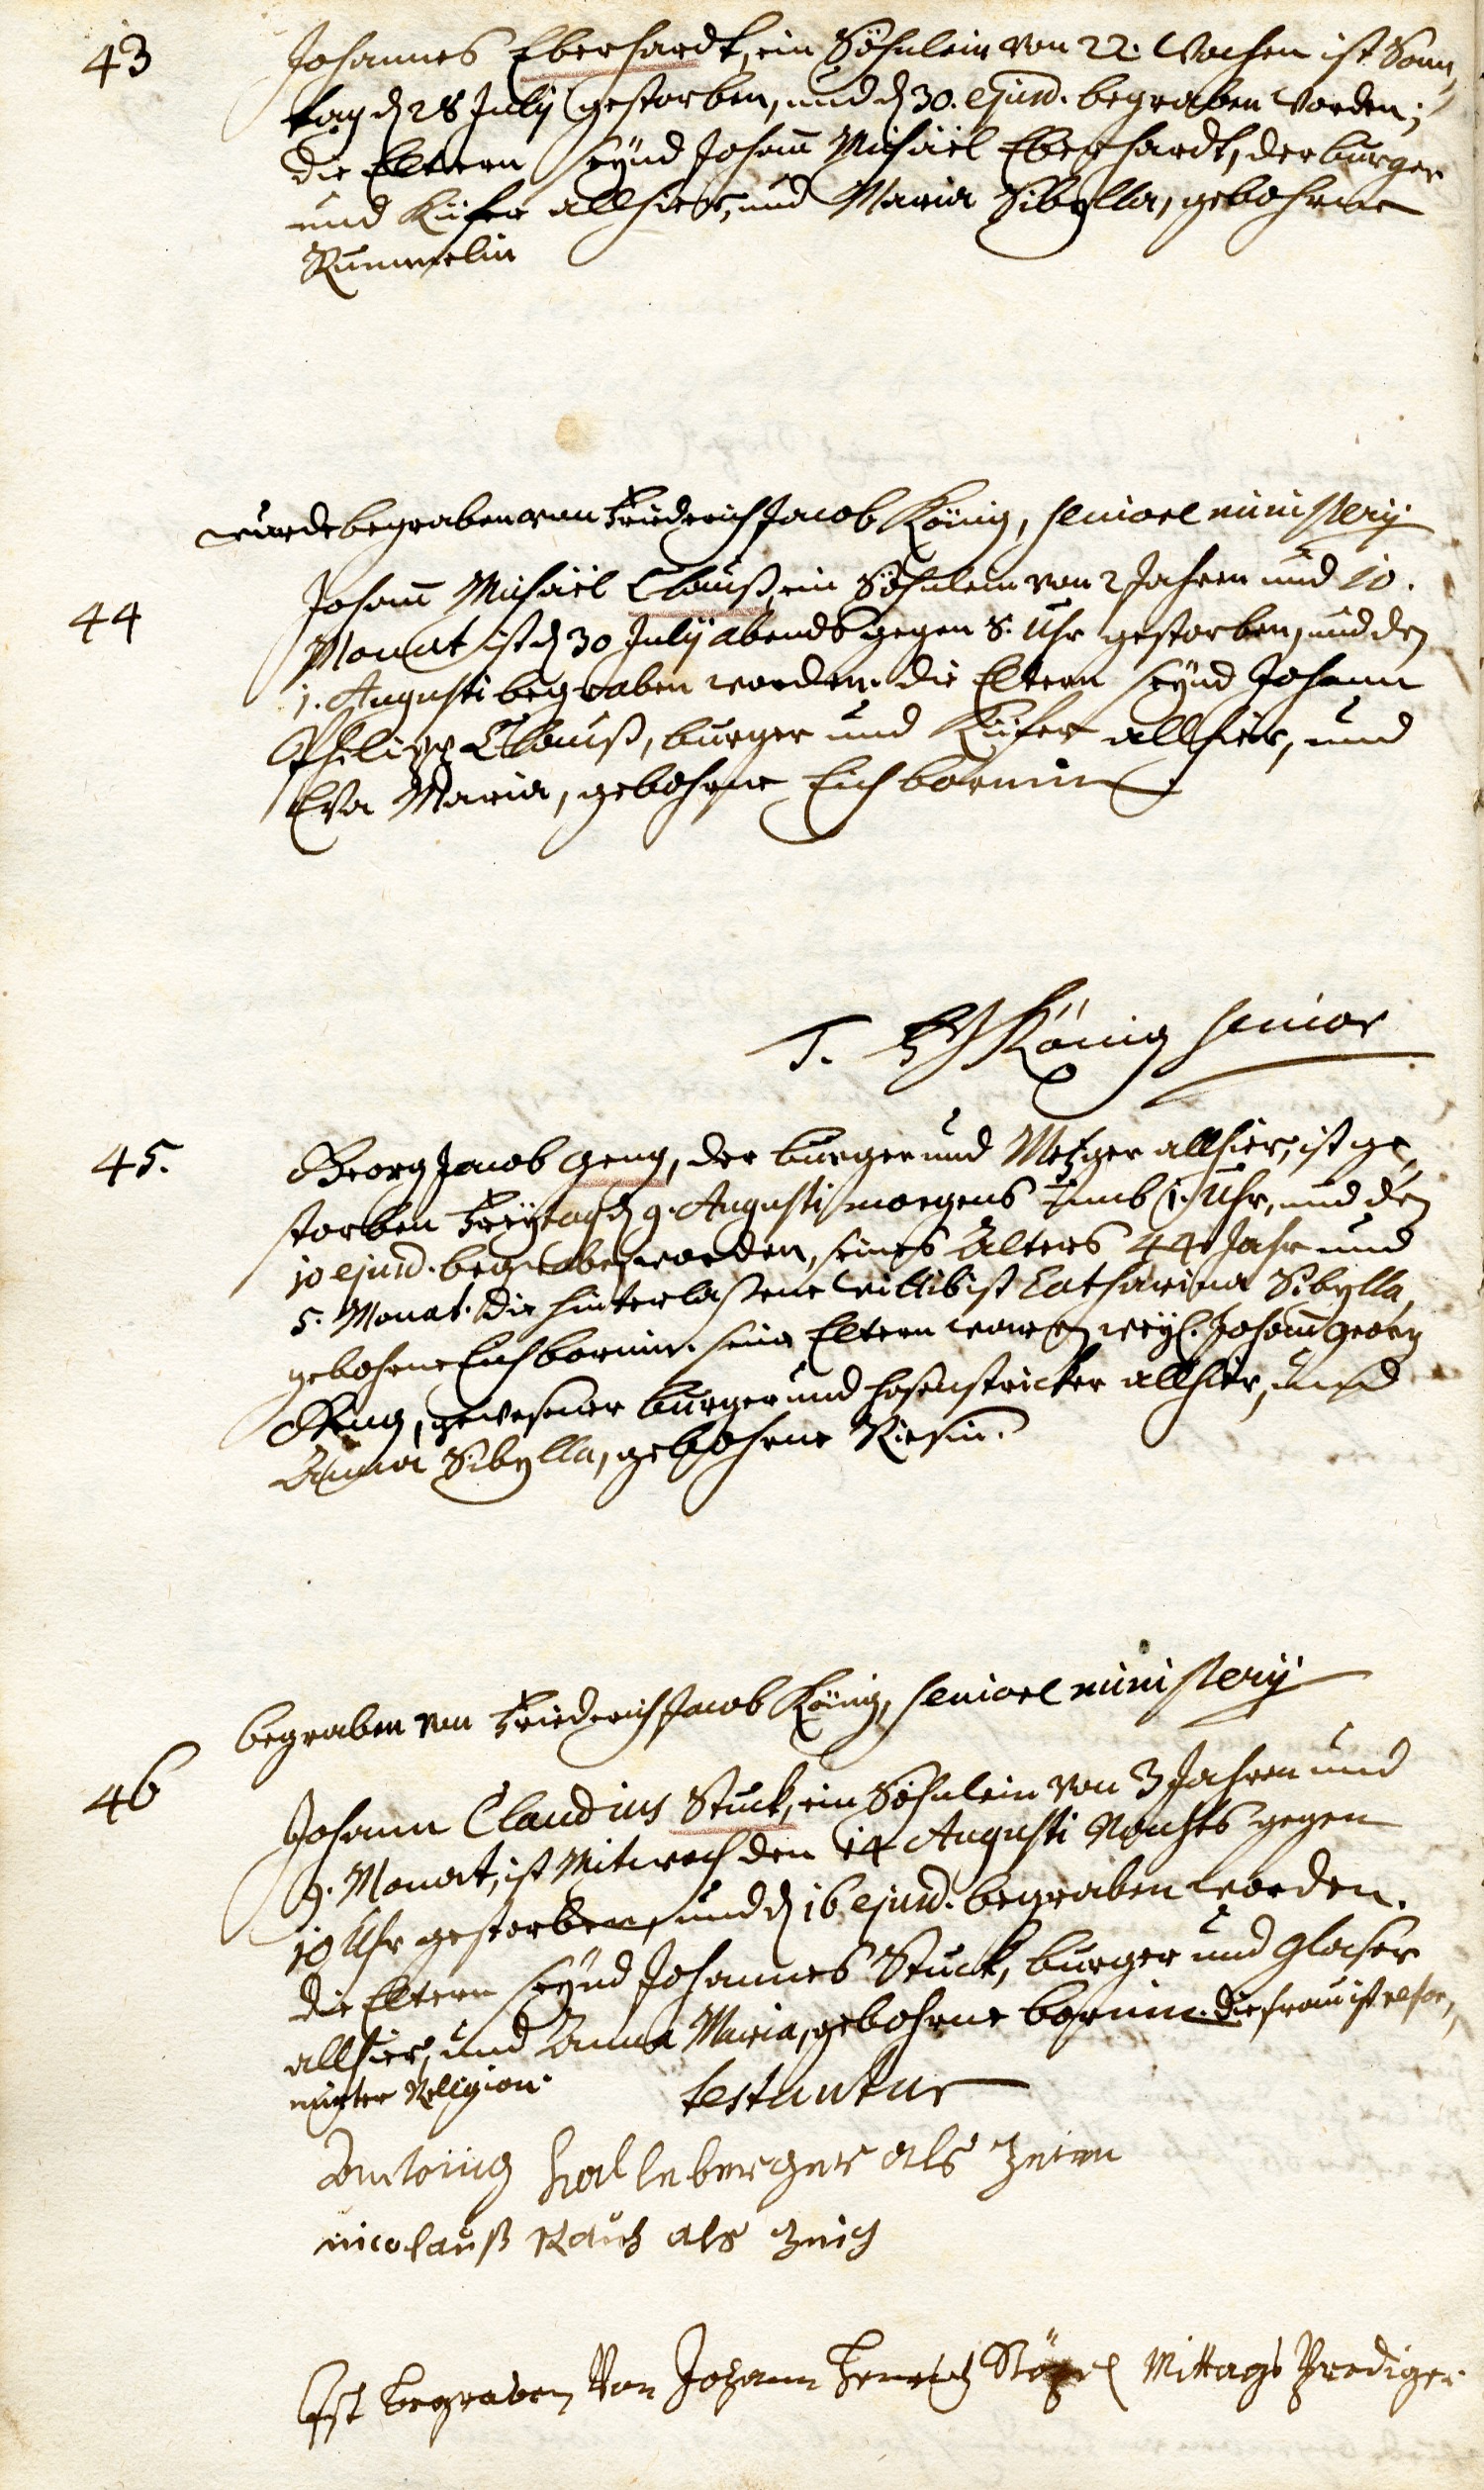 43 Johannes Eberhardt, ein Söhnlein von 22. Wochen ist Sonn-
tag d. 28 July gestorben, und d. 30. ejusd. begraben worden;
die Eltern seynd Johann Michäel Eberhardt, der burger
und Küfer allhier, und Maria Sibylla, gebohrne
Rummelin
wurde begraben von Friederich Jacob König, seniore ministerij
44 Johann Michäel Clauß, ein Söhnlein von 2 Jahren und 10.
Monat ist d. 30 July abends gegen 8. Uhr gestorben, und den
1. Augusti begraben worden. die Eltern seynd Johann
Philipp Clauß, burger und Küfer allhier, und
Eva Maria, gebohrne Eichbornin.
T. FJ König senior
45. Georg Jacob Geng, der burger und Metzger allhier, ist ge-
storben Freytag d. 9. Augusti morgens umb 1. Uhr, und den
10 ejusd. begraben worden, seines Alters 44 Jahr und
5. Monat. die hinterlaßene Wittib ist Catharina Sibylla,
gebohrne Eichbornin. seine Eltern waren weyl. Johann Georg
Geng, gewesener burger und hosenstricker allhier, und
Anna Sibylla, gebohrne Riesin.
begraben von Friederich Jacob König, seniore ministerij
46 Johann Claudius Stuck, ein Söhnlein von 3 Jahren und
9. Monat, ist Mitwoch den 14 Augusti Nachts gegen
10 Uhr gestorben, und d. 16 ejusd. begraben worden.
die Eltern seynd Johannes Stuck, burger und glaser
allhier, und Anna Maria, gebohrne bornin. die frau ist refor-
mirter Religion.
testantur
halleberger als
nicolauß Rauch als zeich
Ist begraben Von Johann Henrich Mittags Prediger